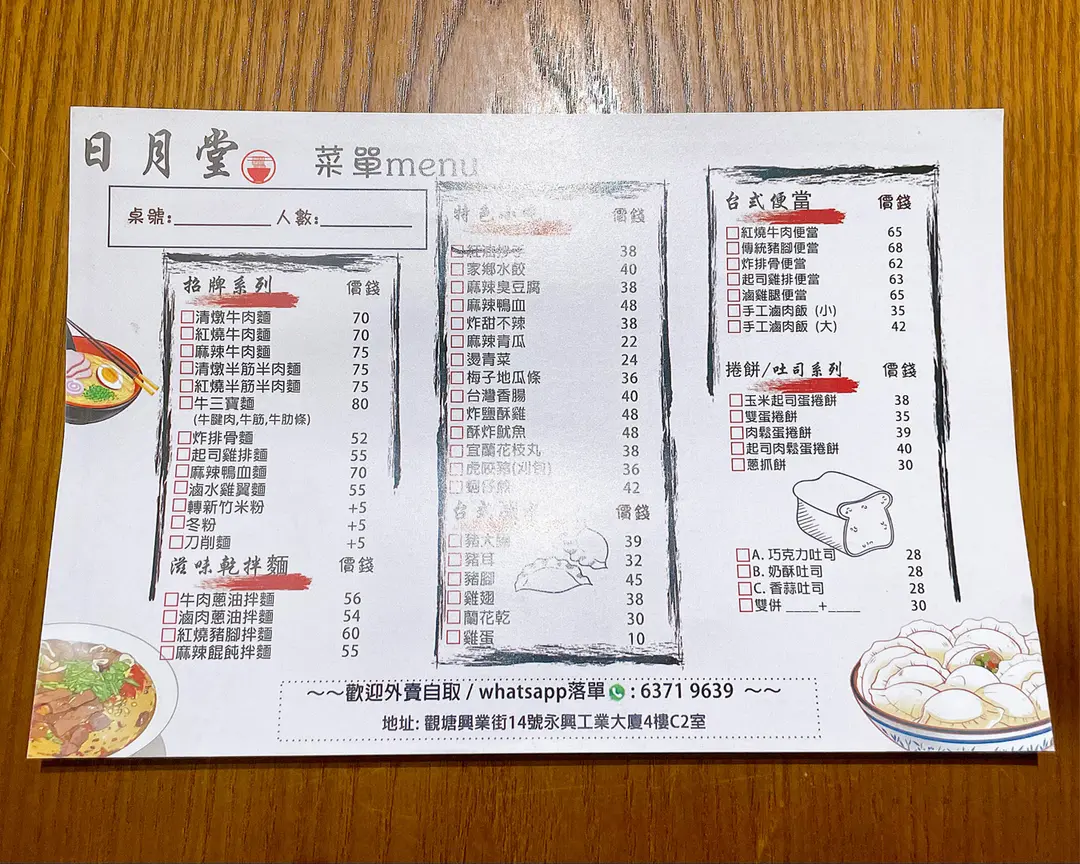 日月堂
菜單menu
桌號:__________人數:__________
招牌系列 價錢
清燉牛肉麵 70
紅燒牛肉麵 70
麻辣牛肉麵 75
清燉半筋半肉麵 75
紅燒半筋半肉麵 75
牛三寶麵 80
(牛腱肉,牛筋,牛肋條)
炸排骨麵 52
起司雞排麵 55
麻辣鴨血麵 70
滷水雞翼麵 55
轉新竹米粉 +5
冬粉 +5
刀削麵 +5
滋味乾拌麵 價錢
牛肉蔥油拌麵 56
滷肉蔥油拌麵 54
紅燒豬腳拌麵 60
麻辣餛飩拌麵 55
特色小 價錢
紅油抄手 38
家鄉水餃 40
麻辣臭豆腐 38
麻辣鴨血 48
炸甜不辣 38
麻辣青瓜 22
燙青菜 24
梅子地瓜條 36
台灣香腸 40
炸鹽酥雞 48
酥炸魷魚 48
宜蘭花枝丸 38
虎咬豬(刈包) 36
蚵仔煎 42
台式 價錢
豬大腸 39
豬耳 32
豬腳 45
雞翅 38
蘭花乾 30
雞蛋 10
台式便當 價錢
紅燒牛肉便當 65
傳統豬腳便當 68
炸排骨便當 62
起司雞排便當 63
滷雞腿便當 65
手工滷肉飯 (小) 35
手工滷肉飯 (大) 42
捲餅/吐司系列 價錢
玉米起司蛋捲餅 38
雙蛋捲餅 35
肉鬆蛋捲餅 39
起司肉鬆蛋捲餅 40
蔥抓餅 30
A. 巧克力吐司 28
B. 奶酥吐司 28
C. 香蒜吐司 28
雙併 ____+____ 30
~~歡迎外賣自取 / whatsapp落單 : 6371 9639 ~~
地址: 觀塘興業街14號永興工業大廈4樓C2室